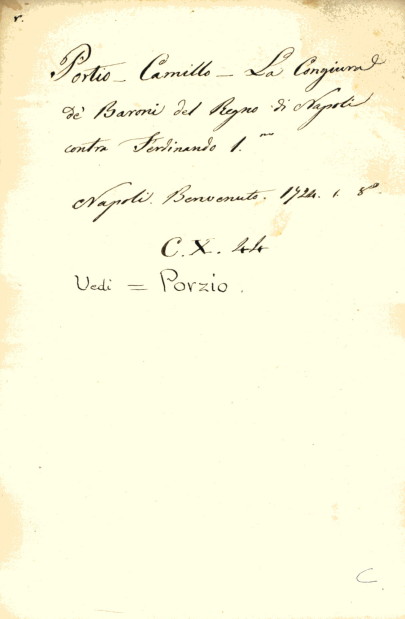 r.
Portio - Camillo - La Congiura
de' Baroni del Regno di Napoli
contra Ferdinando 1.mo
Napoli. Benvenuto. 1724. 1. 8º.
C. X. 44
Vedi = Porzio.
C